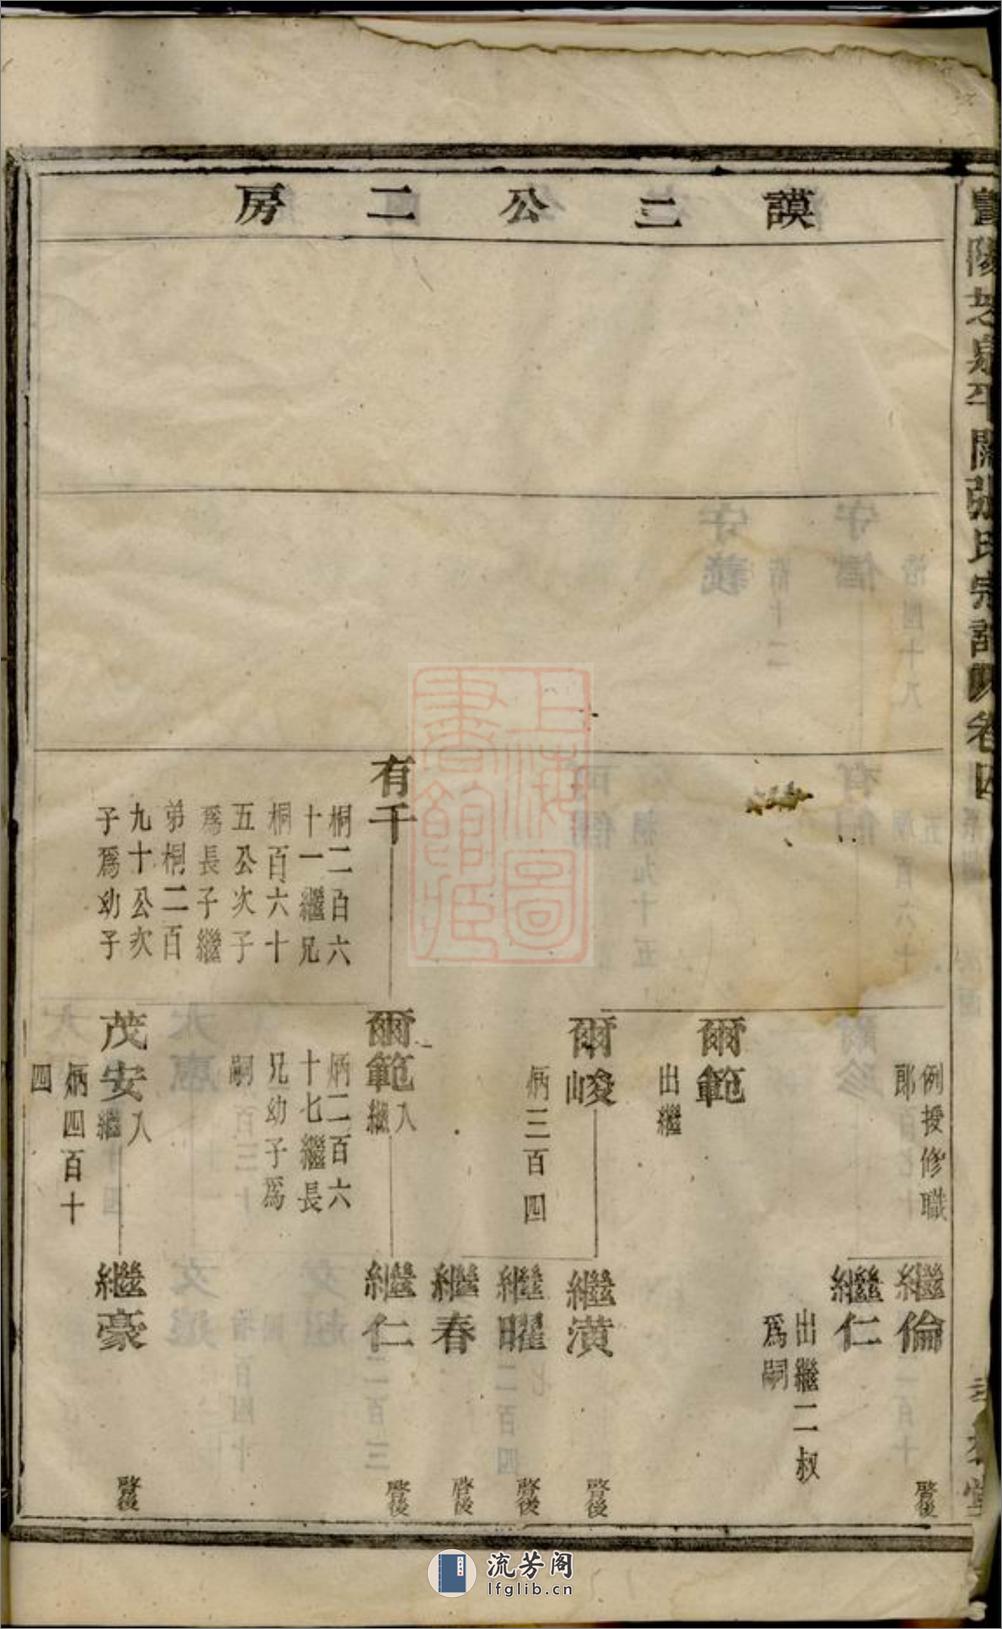 謨二公二房
例授修職
郎
繼倫
啓後
繼仁
出繼二叔
爲嗣
爾範
出繼
爾峻
炳三百四
繼潢
啓後
繼曜
啓後
繼春
啓後
有千
桐二百六
十一繼兄
桐百六十
五公次子
爲長子繼
弟桐二百
九十公次
子爲幼子
爾範
入
繼
炳二百六
十七繼長
兄幼子爲
嗣
繼仁
啓後
茂安
入
繼
炳四百十
四
繼豪
啓後
上海圖書館藏
流芳阁
lfglib.cn